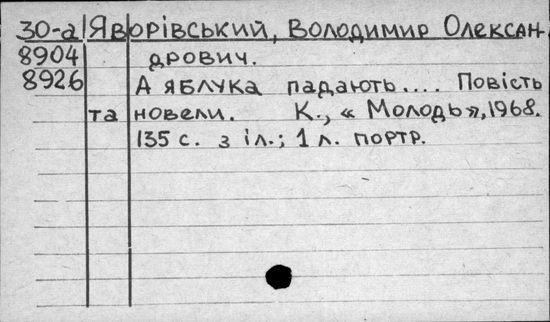 30-а Яворівський, Володимир Олексан-
8904 дрович.
8926 А яблука падають.... Повість
та новели. К., « Молодь», 1968.
135 с. з іл.; 1 л. портр.